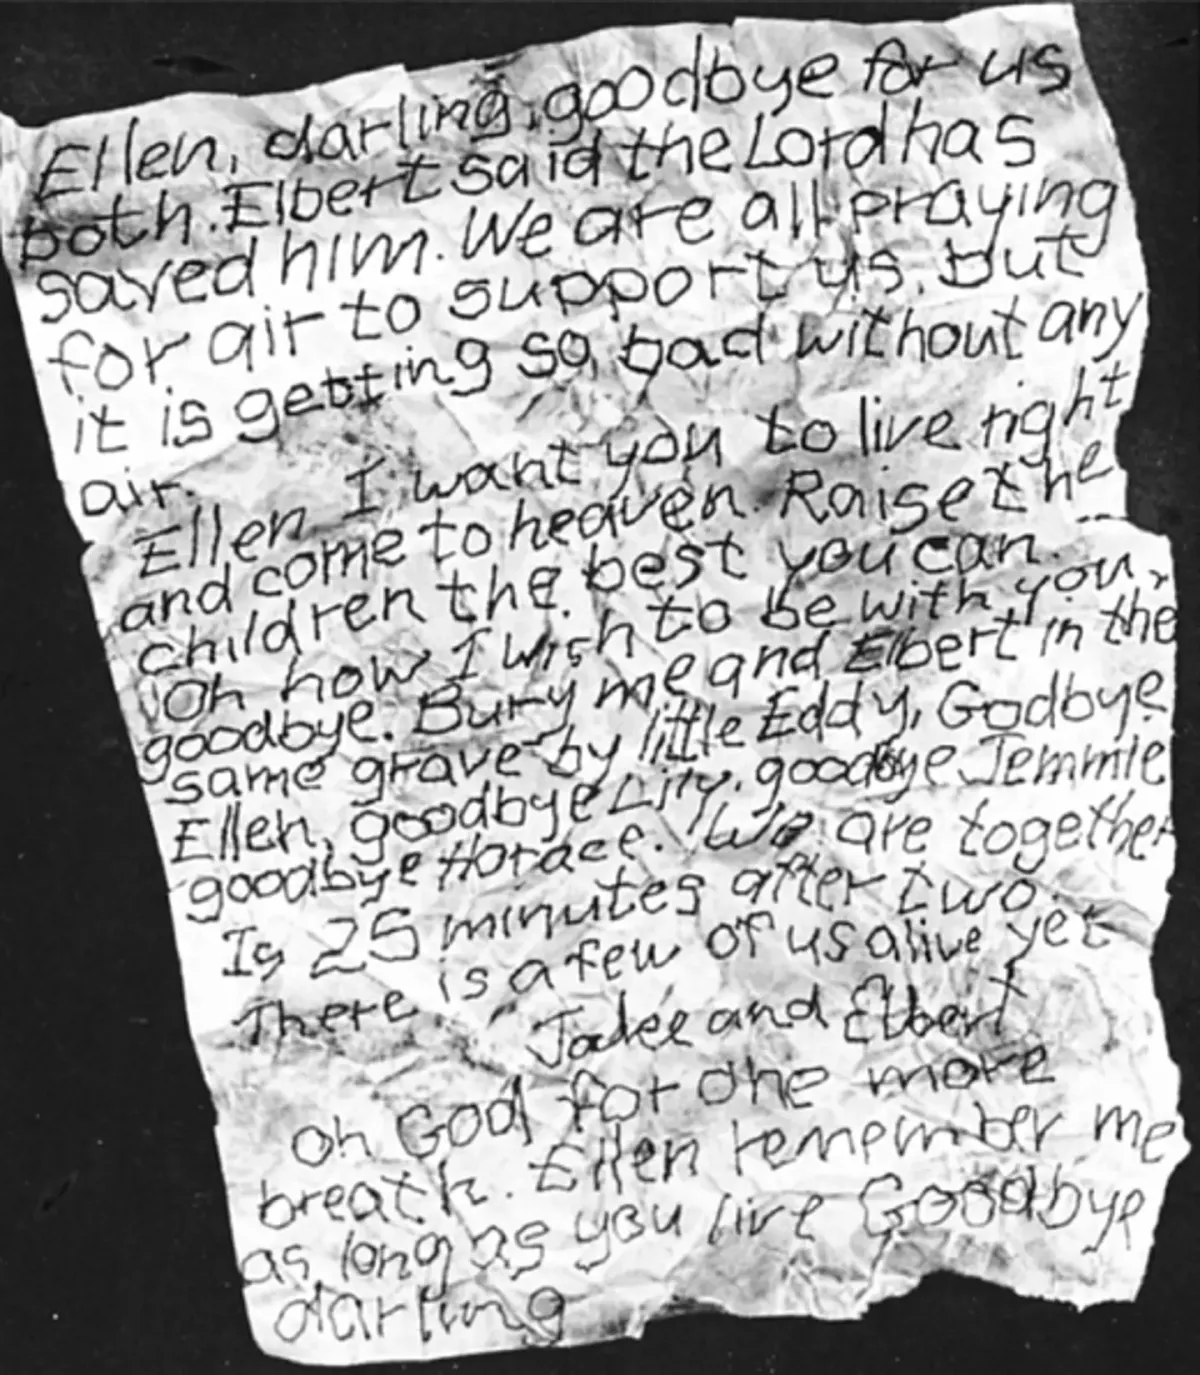 Ellen, darling, goodbye for us
both. Elbert said the Lord has
saved him. We are all praying
for air to support us, but
it is getting so bad without any
air.
Ellen I want you to live right
and come to heaven. Raise the
children the best you can.
Oh how I wish to be with you,
goodbye. Bury me and Elbert in the
same grave by little Eddy, Godbye
Ellen, goodbye Lily, goodbye Jemmie
goodbye Horace. We are together
Is 25 minutes after two.
There is a few of us alive yet
Jakee and Elbert
Oh God for one more
breath. Ellen remember me
as long as you live Goodbye
darling